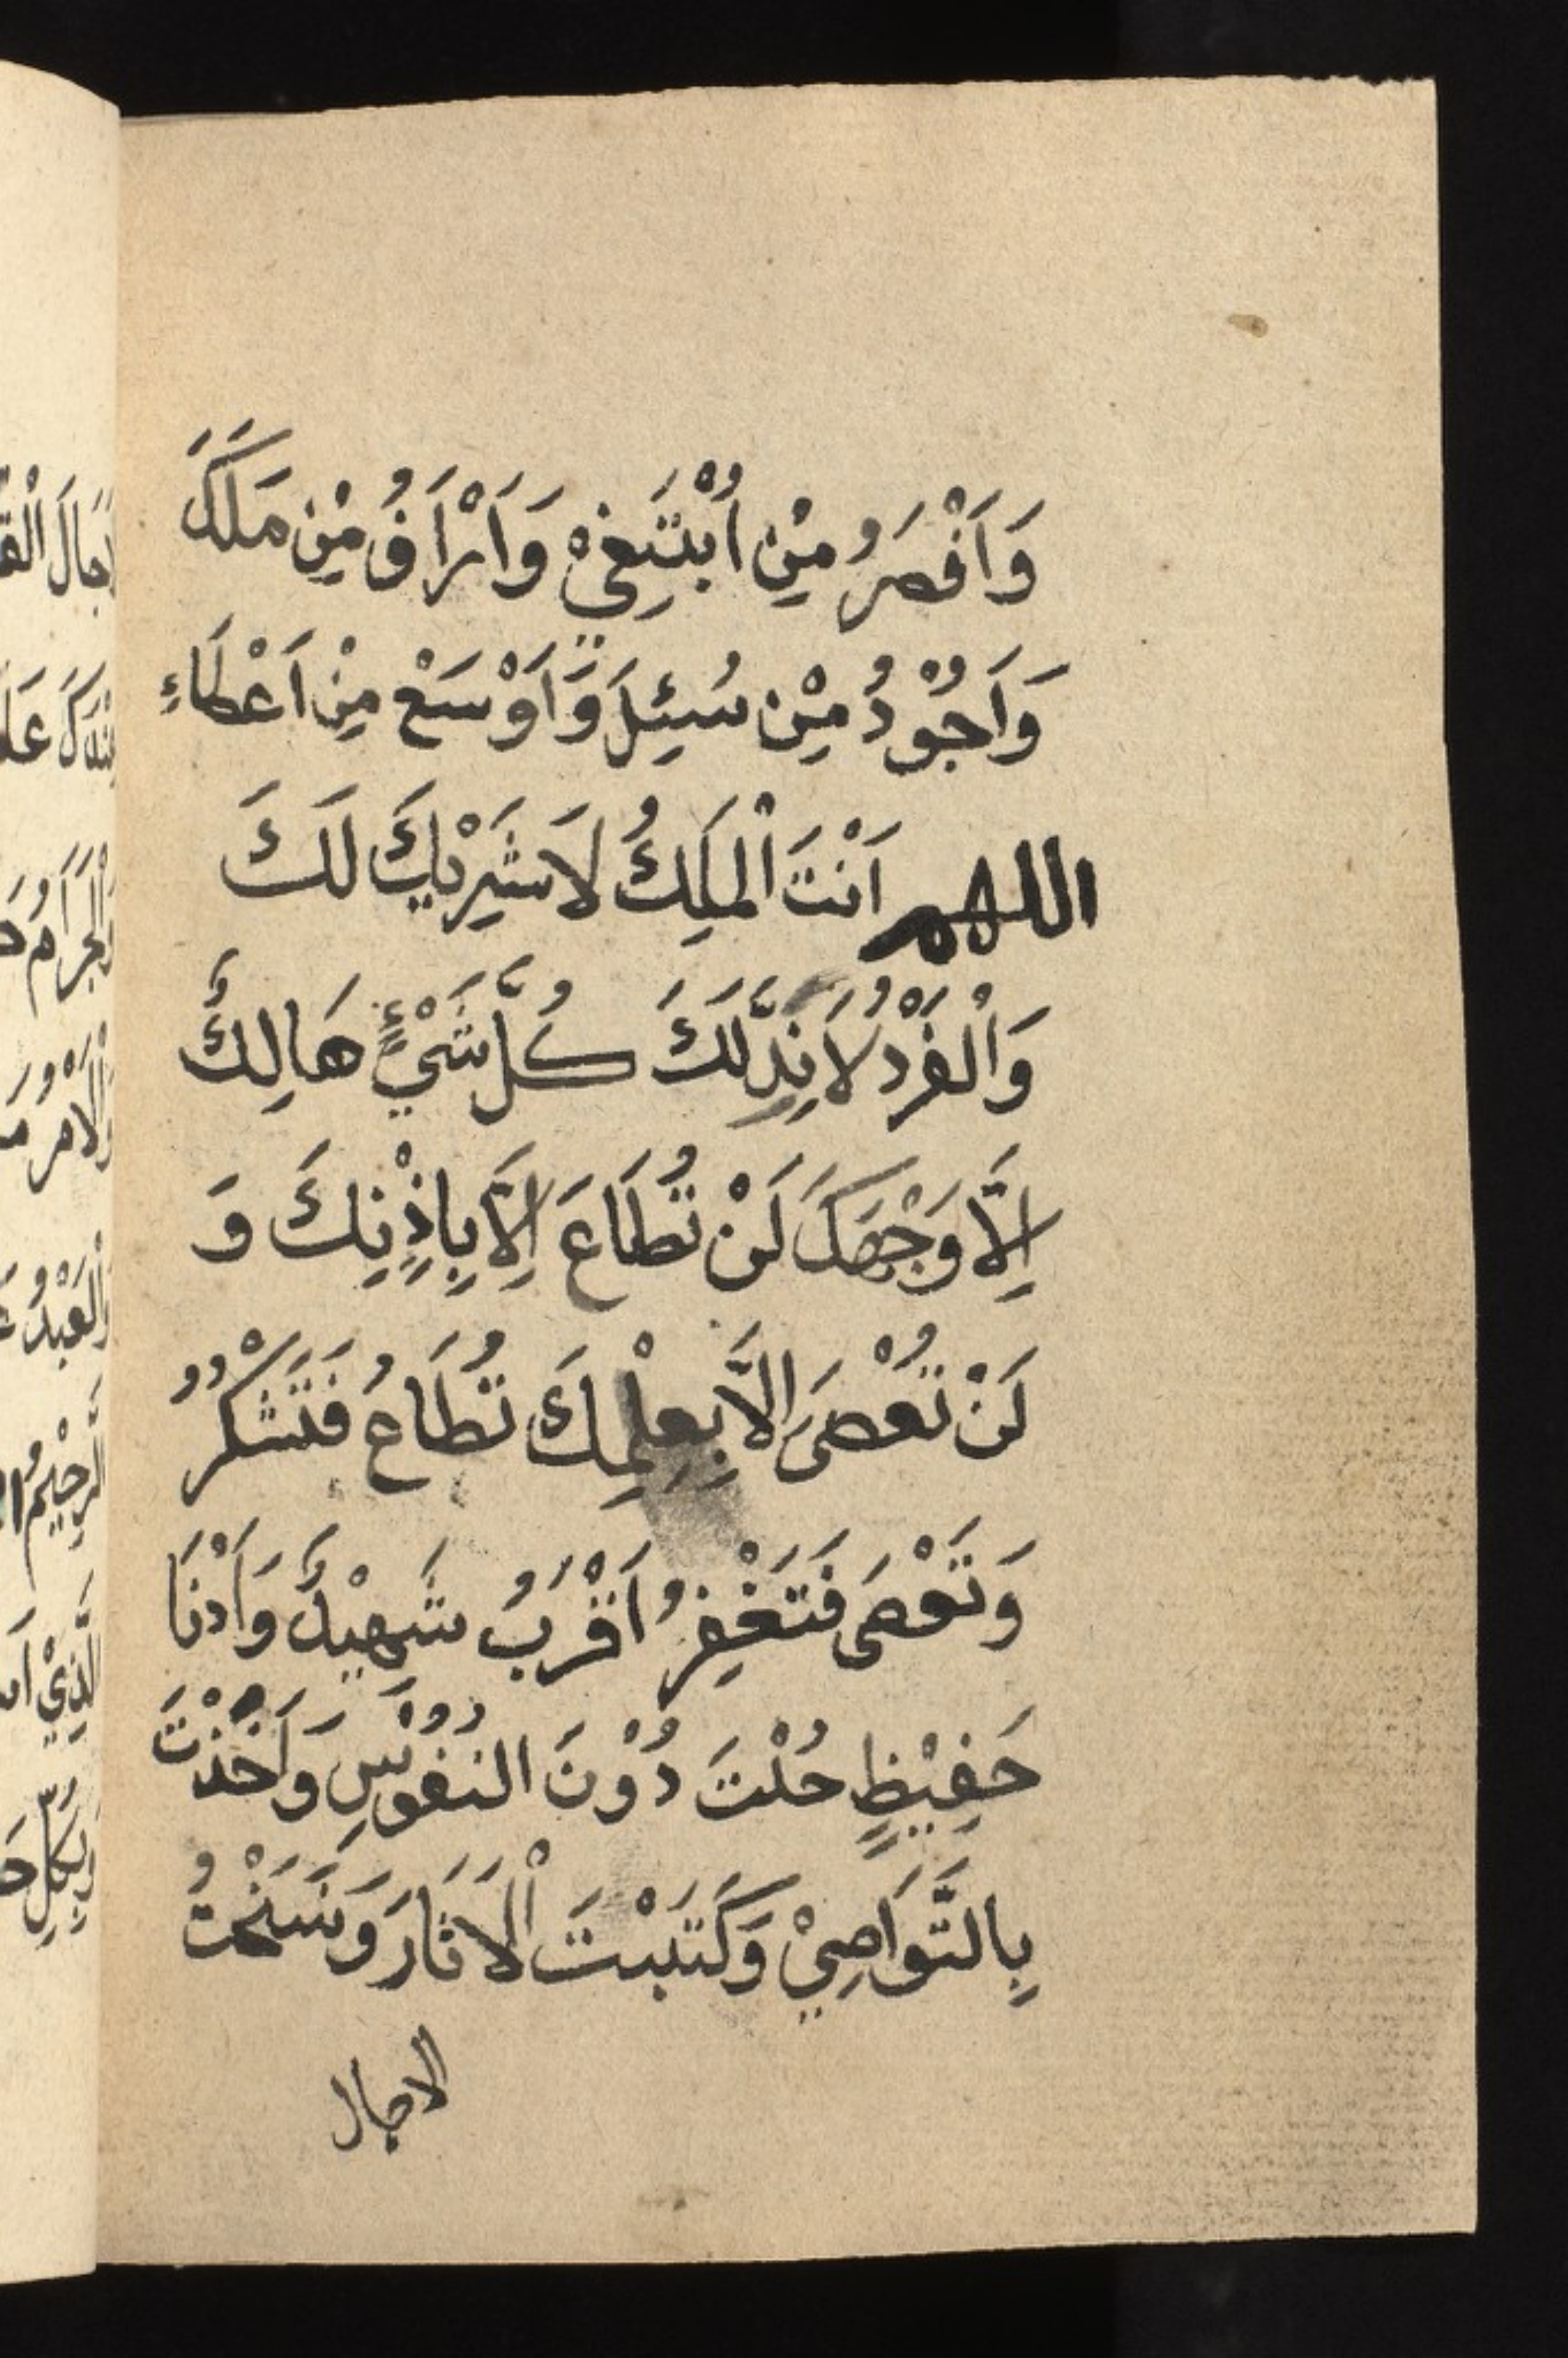 وَاَفْصَرُ مِيْن اُبْتَغِيْ وَاَرْاَفُ مِيْن مَلَكَ
وَاَجُوْدُ مِيْن سُئِلَ وَاَوْسَعْ مِيْن اَعْطَاءِ
اللهم اَنْتَ اْلمَلِكُ لَاشَرِيْكَ لَكَ
وَاْلفَرْدُ لَانِدَّلَكَ كُلُّ شَيْءٍ هَالِكَُ
اِلَّا وَجْهَكَ لَنْ تُطَاعَ اِلَّا بِاِذْنِكَ وَ
لَنْ تُعْصَى اِلاَّ بِعِلْمِكَ تُطَاعُ فَتَشْكُرُ
وَتَعْصَى فَتَغْفِرُ اَقْرَبُ شَهِيْدٌ وَاَدْنَا
حَفِيْظٍ حُلْتَ دُوْنَ النُفُوْسِ وَاَخَذْتَ
بِالتَّوَاصِيْ وَكَتَبْتَ اْلَاثَارَ وَنَسَخْتُ
الاجال